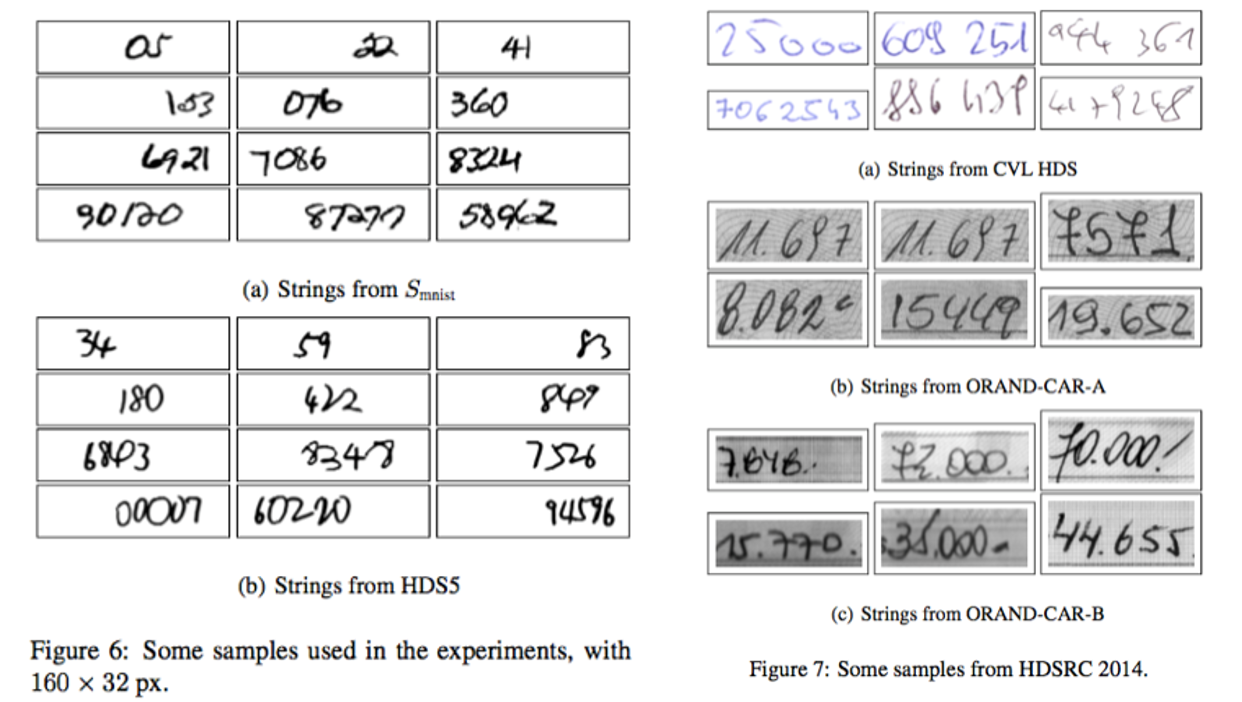 05 22 41
153 076 360
6921 7086 8324
90120 87277 58962
(a) Strings from Smnist
34 59 83
180 422 849
6803 8348 7526
00007 60220 94596
(b) Strings from HDS5
Figure 6: Some samples used in the experiments, with
160 × 32 px.
25000 609 251 944 361
7062543 886 439 4179248
(a) Strings from CVL HDS
11.697 11.697 7571
8.082 15449 19.652
(b) Strings from ORAND-CAR-A
7.648. 72.000. 70.000.
15.770. 35.000- 44.655
(c) Strings from ORAND-CAR-B
Figure 7: Some samples from HDSRC 2014.